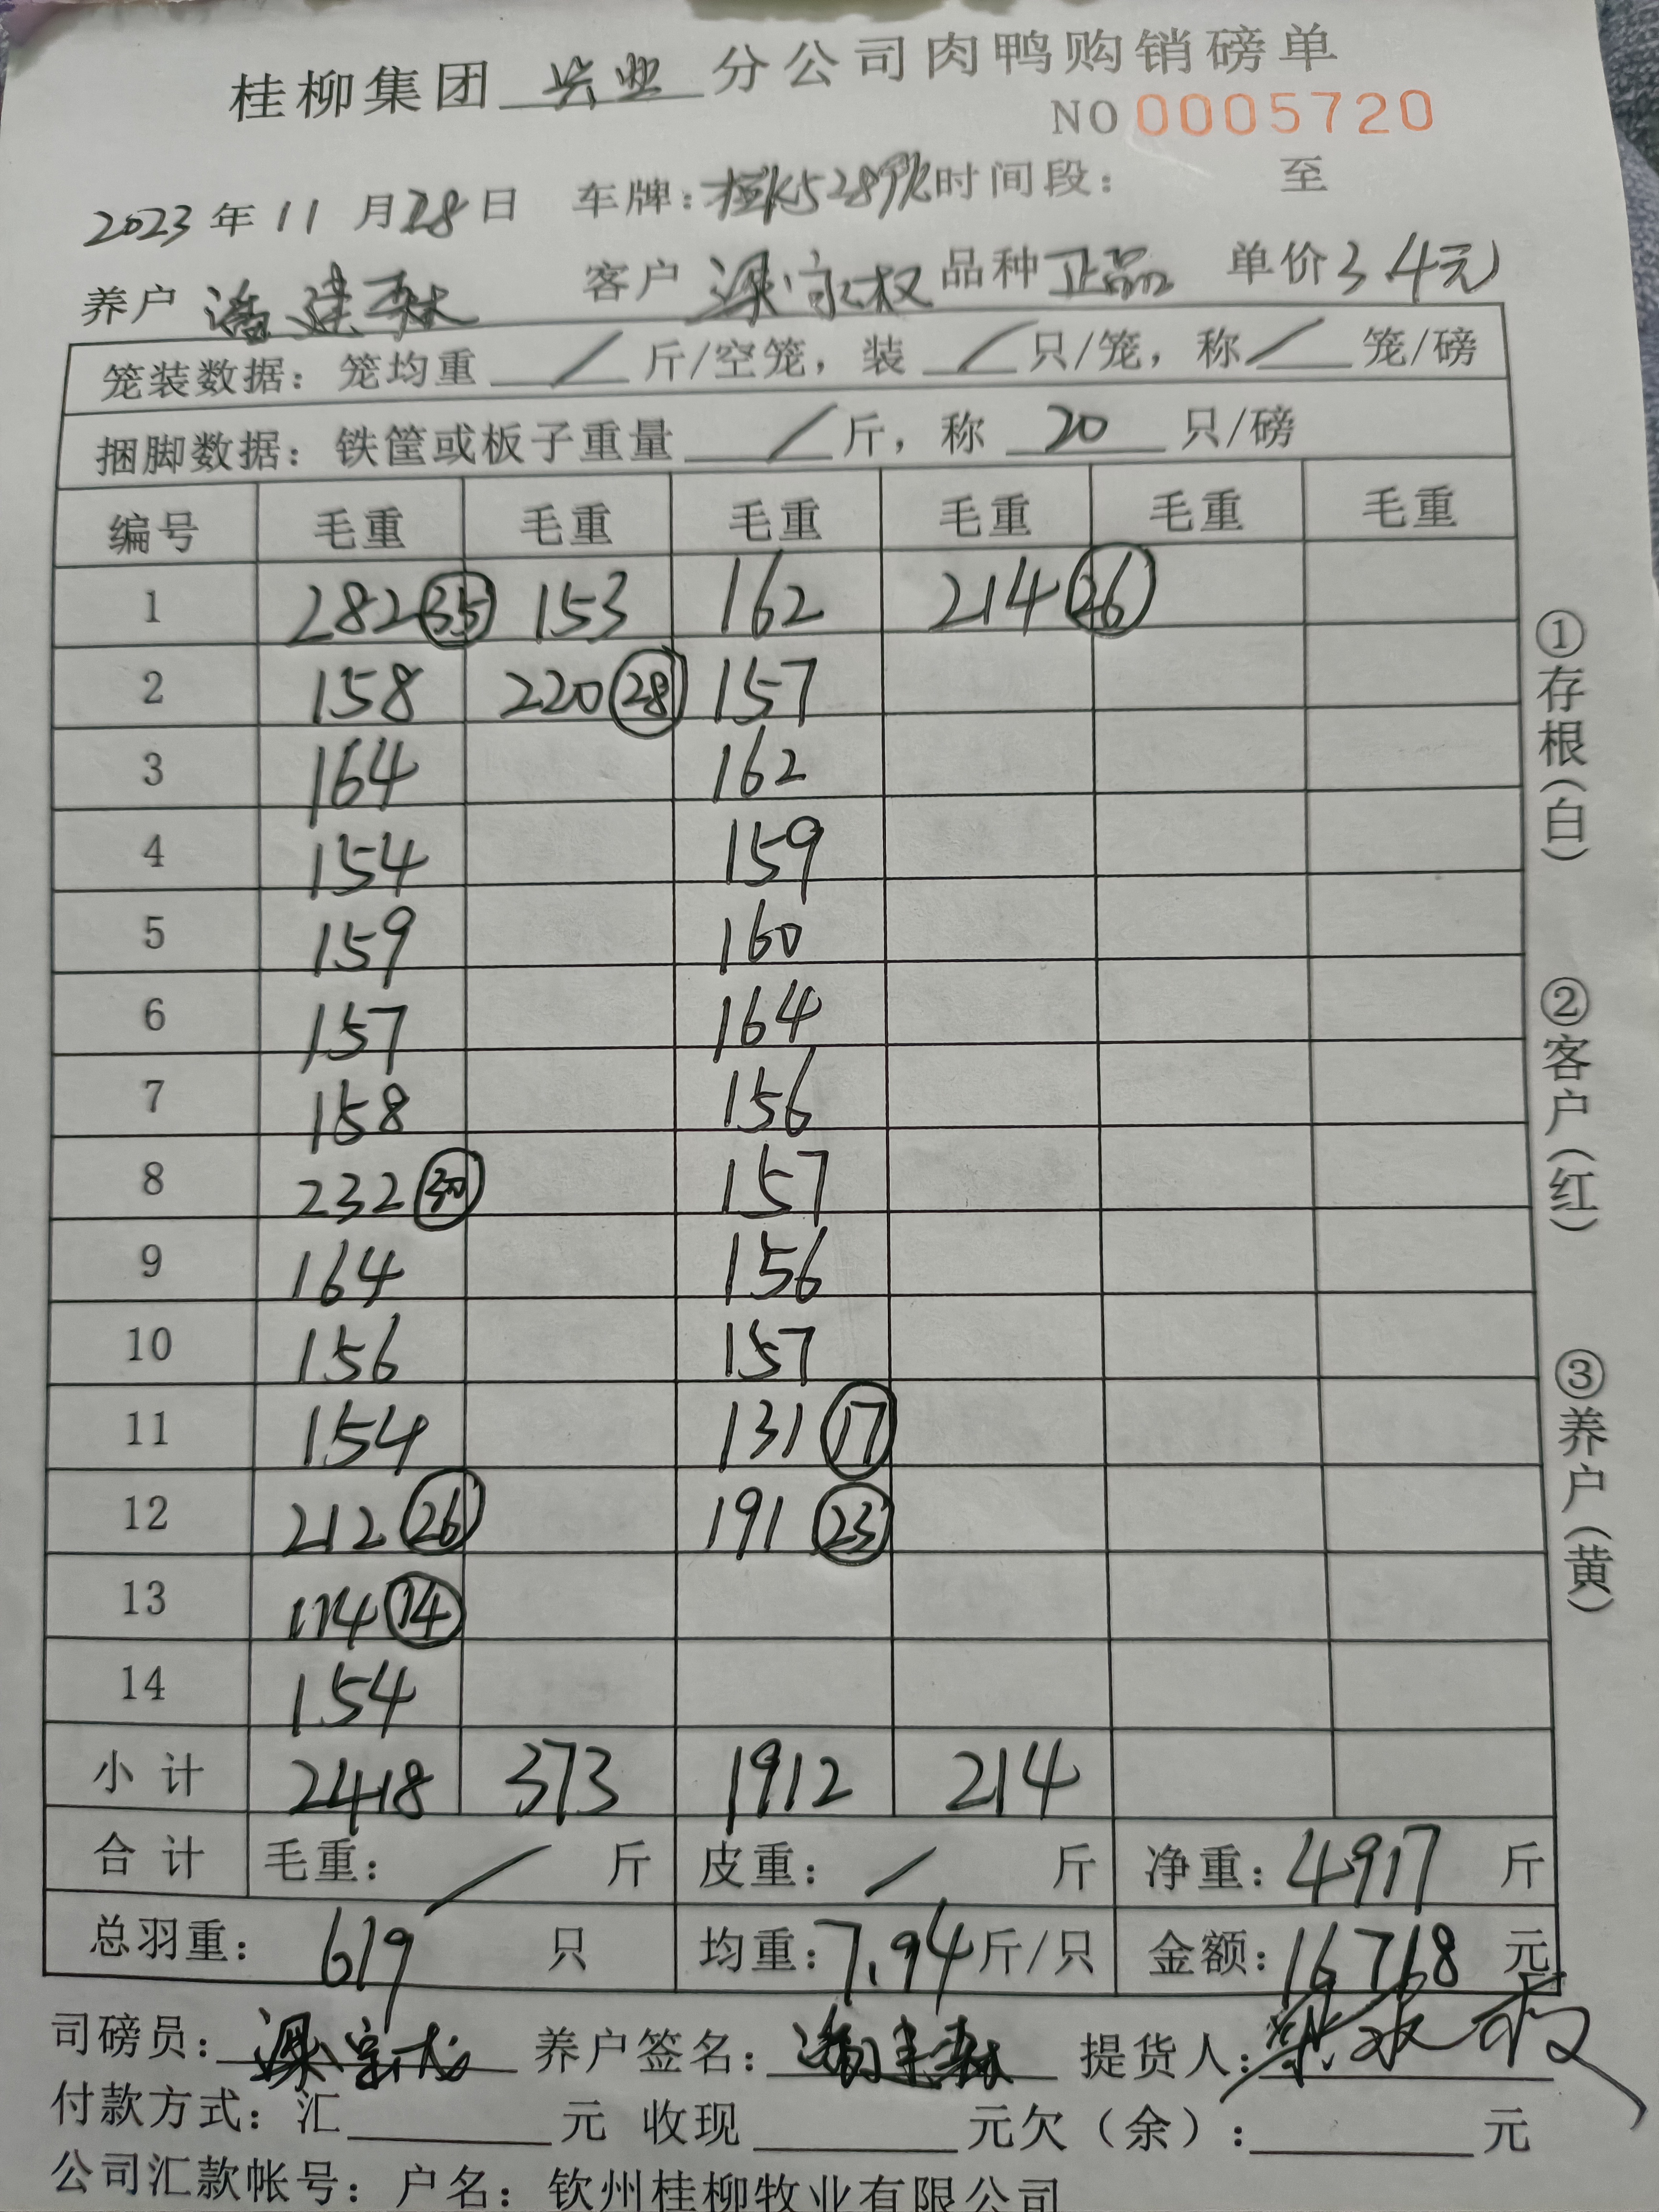 桂柳集团 兴业 分公司肉鸭购销磅单
NO 0005720
2023年11月28日 车牌: 时间段: 至
养户 潘建森 客户 梁家权 品种 正品 单价 3.4元
笼装数据: 笼均重 / 斤/空笼, 装 / 只/笼, 称 / 笼/磅
捆脚数据: 铁筐或板子重量 / 斤, 称 20 只/磅
编号 毛重 毛重 毛重 毛重 毛重 毛重
1 282 (35) 153 162 214 (26)
2 158 220 (28) 157
3 164 162
4 154 159
5 159 160
6 157 164
7 158 156
8 232 (30) 157
9 164 156
10 156 157
11 154 131 (17)
12 212 (26) 191 (23)
13 114 (14)
14 154
小计 2418 373 1912 214
合计 毛重: / 斤 皮重: / 斤 净重: 4917 斤
总羽重: 619 只 均重: 7.94 斤/只 金额: 16718 元
司磅员: 养户签名: 潘建森 提货人:
付款方式: 汇 元 收现 元欠(余): 元
公司汇款帐号: 户名: 钦州桂柳牧业有限公司
①存根(白)
②客户(红)
③养户(黄)